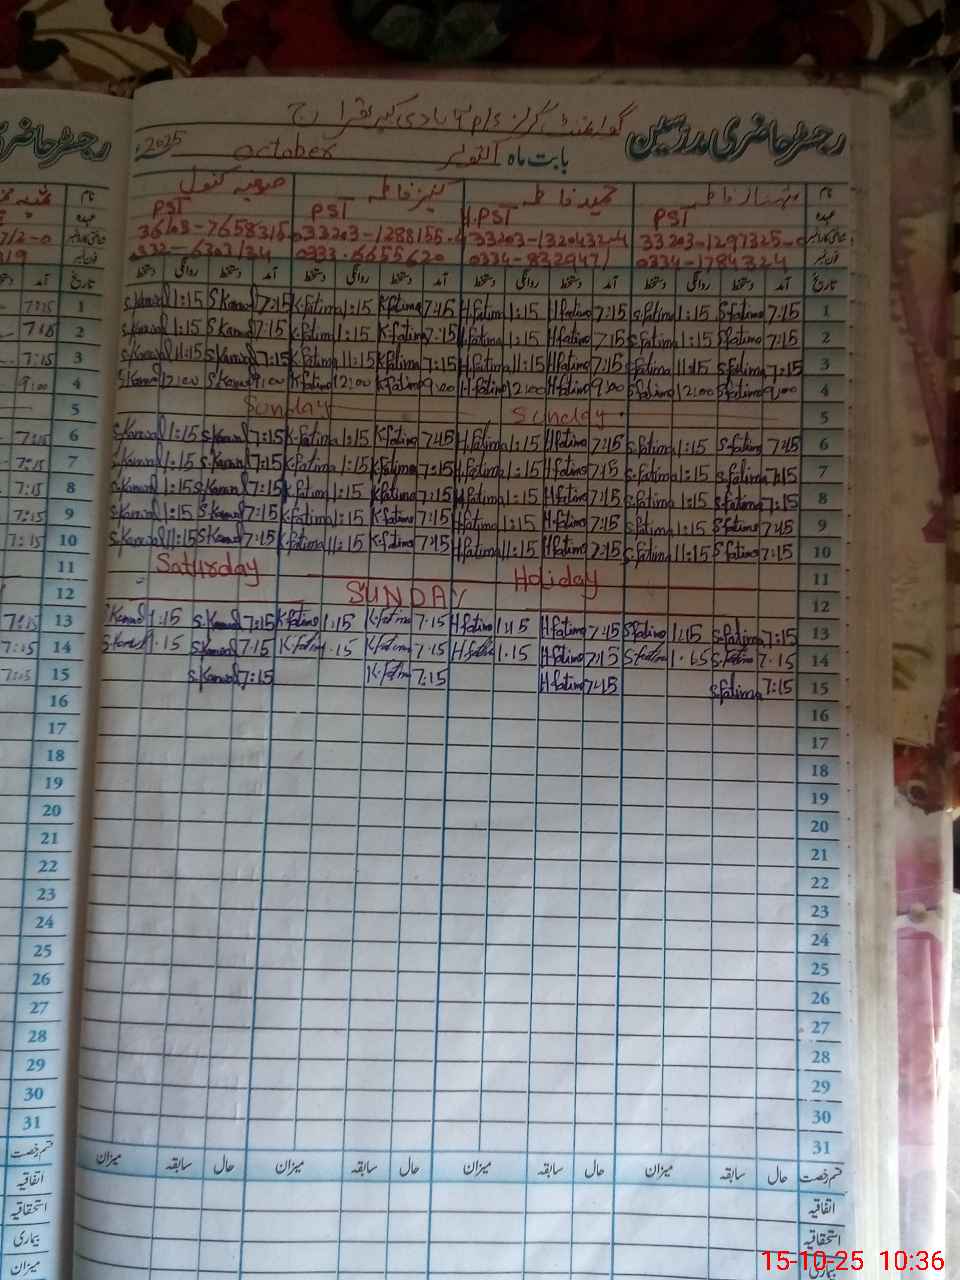 رجسٹر حاضری مدرسین
گورنمنٹ گرلز P/S
بابت ماہ اکتوبر October 2025
نام شہناز فاطمہ حمید فاطمہ کنیز فاطمہ صوفیہ کنول نام
عہدہ PST H.PST PST PST عہدہ
33203-1297325-0 33203-1320432-4 33203-1288155-4
فون نمبر 0334-1784324 0334-8329471 0333-6655620 فون نمبر
تاریخ آمد دستخط روانگی دستخط آمد دستخط روانگی دستخط آمد دستخط روانگی دستخط آمد دستخط روانگی دستخط تاریخ
1 S.Kanwal 1:15 S.Kanwal 7:15 K.fatima 1:15 K.fatima 7:15 H.fatima 1:15 H.fatima 7:15 S.fatima 1:15 S.fatima 7:15 1
2 S.Kanwal 1:15 S.Kanwal 7:15 K.fatima 1:15 K.fatima 7:15 H.fatima 1:15 H.fatima 7:15 S.fatima 1:15 S.fatima 7:15 2
3 S.Kanwal 11:15 S.Kanwal 7:15 K.fatima 11:15 K.fatima 7:15 H.fatima 11:15 H.fatima 7:15 S.fatima 11:15 S.fatima 7:15 3
4 S.Kanwal 12:00 S.Kanwal 9:00 K.fatima 12:00 K.fatima 9:00 H.fatima 12:00 H.fatima 9:00 S.fatima 12:00 S.fatima 9:00 4
5 Sunday Sunday 5
6 S.Kanwal 1:15 S.Kanwal 7:15 K.fatima 1:15 K.fatima 7:15 H.fatima 1:15 H.fatima 7:15 S.fatima 1:15 S.fatima 7:15 6
7 S.Kanwal 1:15 S.Kanwal 7:15 K.fatima 1:15 K.fatima 7:15 H.fatima 1:15 H.fatima 7:15 S.fatima 1:15 S.fatima 7:15 7
8 S.Kanwal 1:15 S.Kanwal 7:15 K.fatima 1:15 K.fatima 7:15 H.fatima 1:15 H.fatima 7:15 S.fatima 1:15 S.fatima 7:15 8
9 S.Kanwal 1:15 S.Kanwal 7:15 K.fatima 1:15 K.fatima 7:15 H.fatima 1:15 H.fatima 7:15 S.fatima 1:15 S.fatima 7:15 9
10 S.Kanwal 11:15 S.Kanwal 7:15 K.fatima 11:15 K.fatima 7:15 H.fatima 11:15 H.fatima 7:15 S.fatima 11:15 S.fatima 7:15 10
11 Saturday Holiday 11
12 SUNDAY 12
13 S.Kanwal 1:15 S.Kanwal 7:15 K.fatima 1:15 K.fatima 7:15 H.fatima 1:15 H.fatima 7:15 S.fatima 1:15 S.fatima 7:15 13
14 S.Kanwal 1:15 S.Kanwal 7:15 K.fatima 1:15 K.fatima 7:15 H.fatima 1:15 H.fatima 7:15 S.fatima 1:15 S.fatima 7:15 14
15 S.Kanwal 7:15 K.fatima 7:15 H.fatima 7:15 S.fatima 7:15 15
16 16
17 17
18 18
19 19
20 20
21 21
22 22
23 23
24 24
25 25
26 26
27 27
28 28
29 29
30 30
31 31
قسم رخصت حال سابقہ میزان حال سابقہ میزان حال سابقہ میزان حال سابقہ میزان قسم رخصت
اتفاقیہ اتفاقیہ
استحقاقیہ استحقاقیہ
بیماری بیماری
میزان
15-10-25 10:36